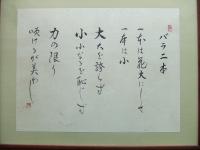 バラ二本
一本は花大にして
一本は小
大大を誇らず
小小なるを恥じず
力の限り
咲けるが美し